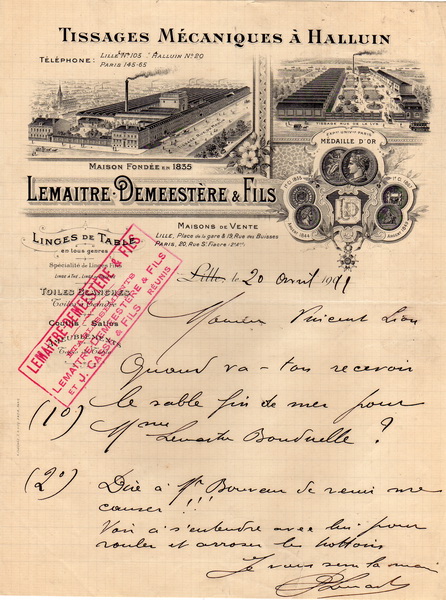 TISSAGES MÉCANIQUES À HALLUIN
TÉLÉPHONE: LILLE Nº 105 HALLUIN Nº 20
PARIS 145-65
TISSAGE RUE DE LA LYS
MAISON FONDÉE EN 1835
MÉDAILLE D'OR
LEMAITRE-DEMEESTÈRE & FILS
LD
MAISONS DE VENTE
LILLE, Place de la gare & 19, Rue du Buisses
PARIS, 20, Rue St Fiacre
LINGES DE TABLE
en tous genres
Spécialité de Linges Fins
TOILES BLANCHES
LEMAITRE-DEMEESTÈRE & FILS
ETABLISSEMENTS
LEMAITRE-DEMEESTÈRE & FILS
ET J. CASSE & FILS RÉUNIS
Lille, le 20 avril 19
Monsieur Vincent Lion
Quand va-t-on recevoir
(1º) le sable fin de mer pour
Mme Lemaitre Bonduelle ?
(2º) Dire à Mr de venir me
causer !!!
Voir à s'entendre avec lui pour
rouler et arroser les trottoirs
Je vous serre la main